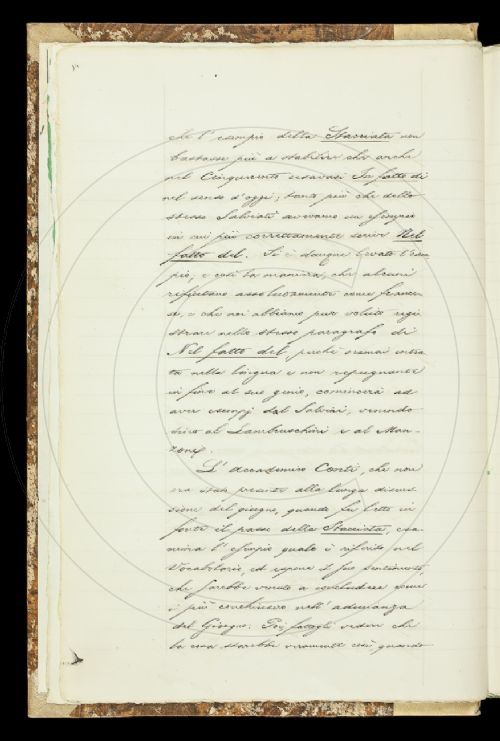 che l'esempio della Stacciata non
bastasse più a stabilire che anche
nel Cinquecento usavasi In fatto di
nel senso d'oggi; tanto più che dello
stesso Salviati avevamo un esempio
in cui più correttamente scrive Nel
fatto del. Si è dunque levato l'esem
pio, e così la maniera, che alcuni
rifiutano assolutamente come france
se, e che noi abbiamo pur voluto regi
strare nello stesso paragrafo di
Nel fatto del, perchè oramai entra
ta nella lingua e non repugnante
in fine al suo genio, comincerà ad
aver esempj dal Salvini, venendo
fino al Lambruschini e al Man-
zoni.
L'accademico Conti, che non
era stato presente alla lunga discus
sione del giugno, quando fu letto in
fonte il passo della Stacciata, esa-
mina l'esempio quale è riferito nel
Vocabolario, ed espone il suo sentimento
che sarebbe venuto a concludere come
i più conclusero nell'adunanza
del Giugno. Poi fattogli vedere che
la cosa starebbe veramente così, quando